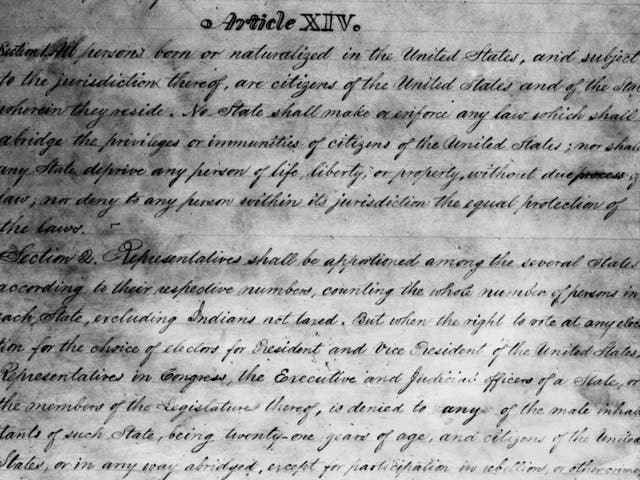 Article XIV.
Section 1. All persons born or naturalized in the United States, and subject
to the jurisdiction thereof, are citizens of the United States and of the Stat
wherein they reside. No State shall make or enforce any law which shall
abridge the privileges or immunities of citizens of the United States; nor shall
any State deprive any person of life, liberty, or property, without due process of
law; nor deny to any person within its jurisdiction the equal protection of
the laws.
Section 2. Representatives shall be apportioned among the several States
according to their respective numbers, counting the whole number of persons in
each State, excluding Indians not taxed. But when the right to vote at any elec
tion for the choice of electors for President and Vice President of the United States,
Representatives in Congress, the Executive and Judicial officers of a State, or
the members of the Legislature thereof, is denied to any of the male inhabi
tants of such State, being twenty-one years of age, and citizens of the United
States, or in any way abridged, except for participation in rebellion, or other crime,